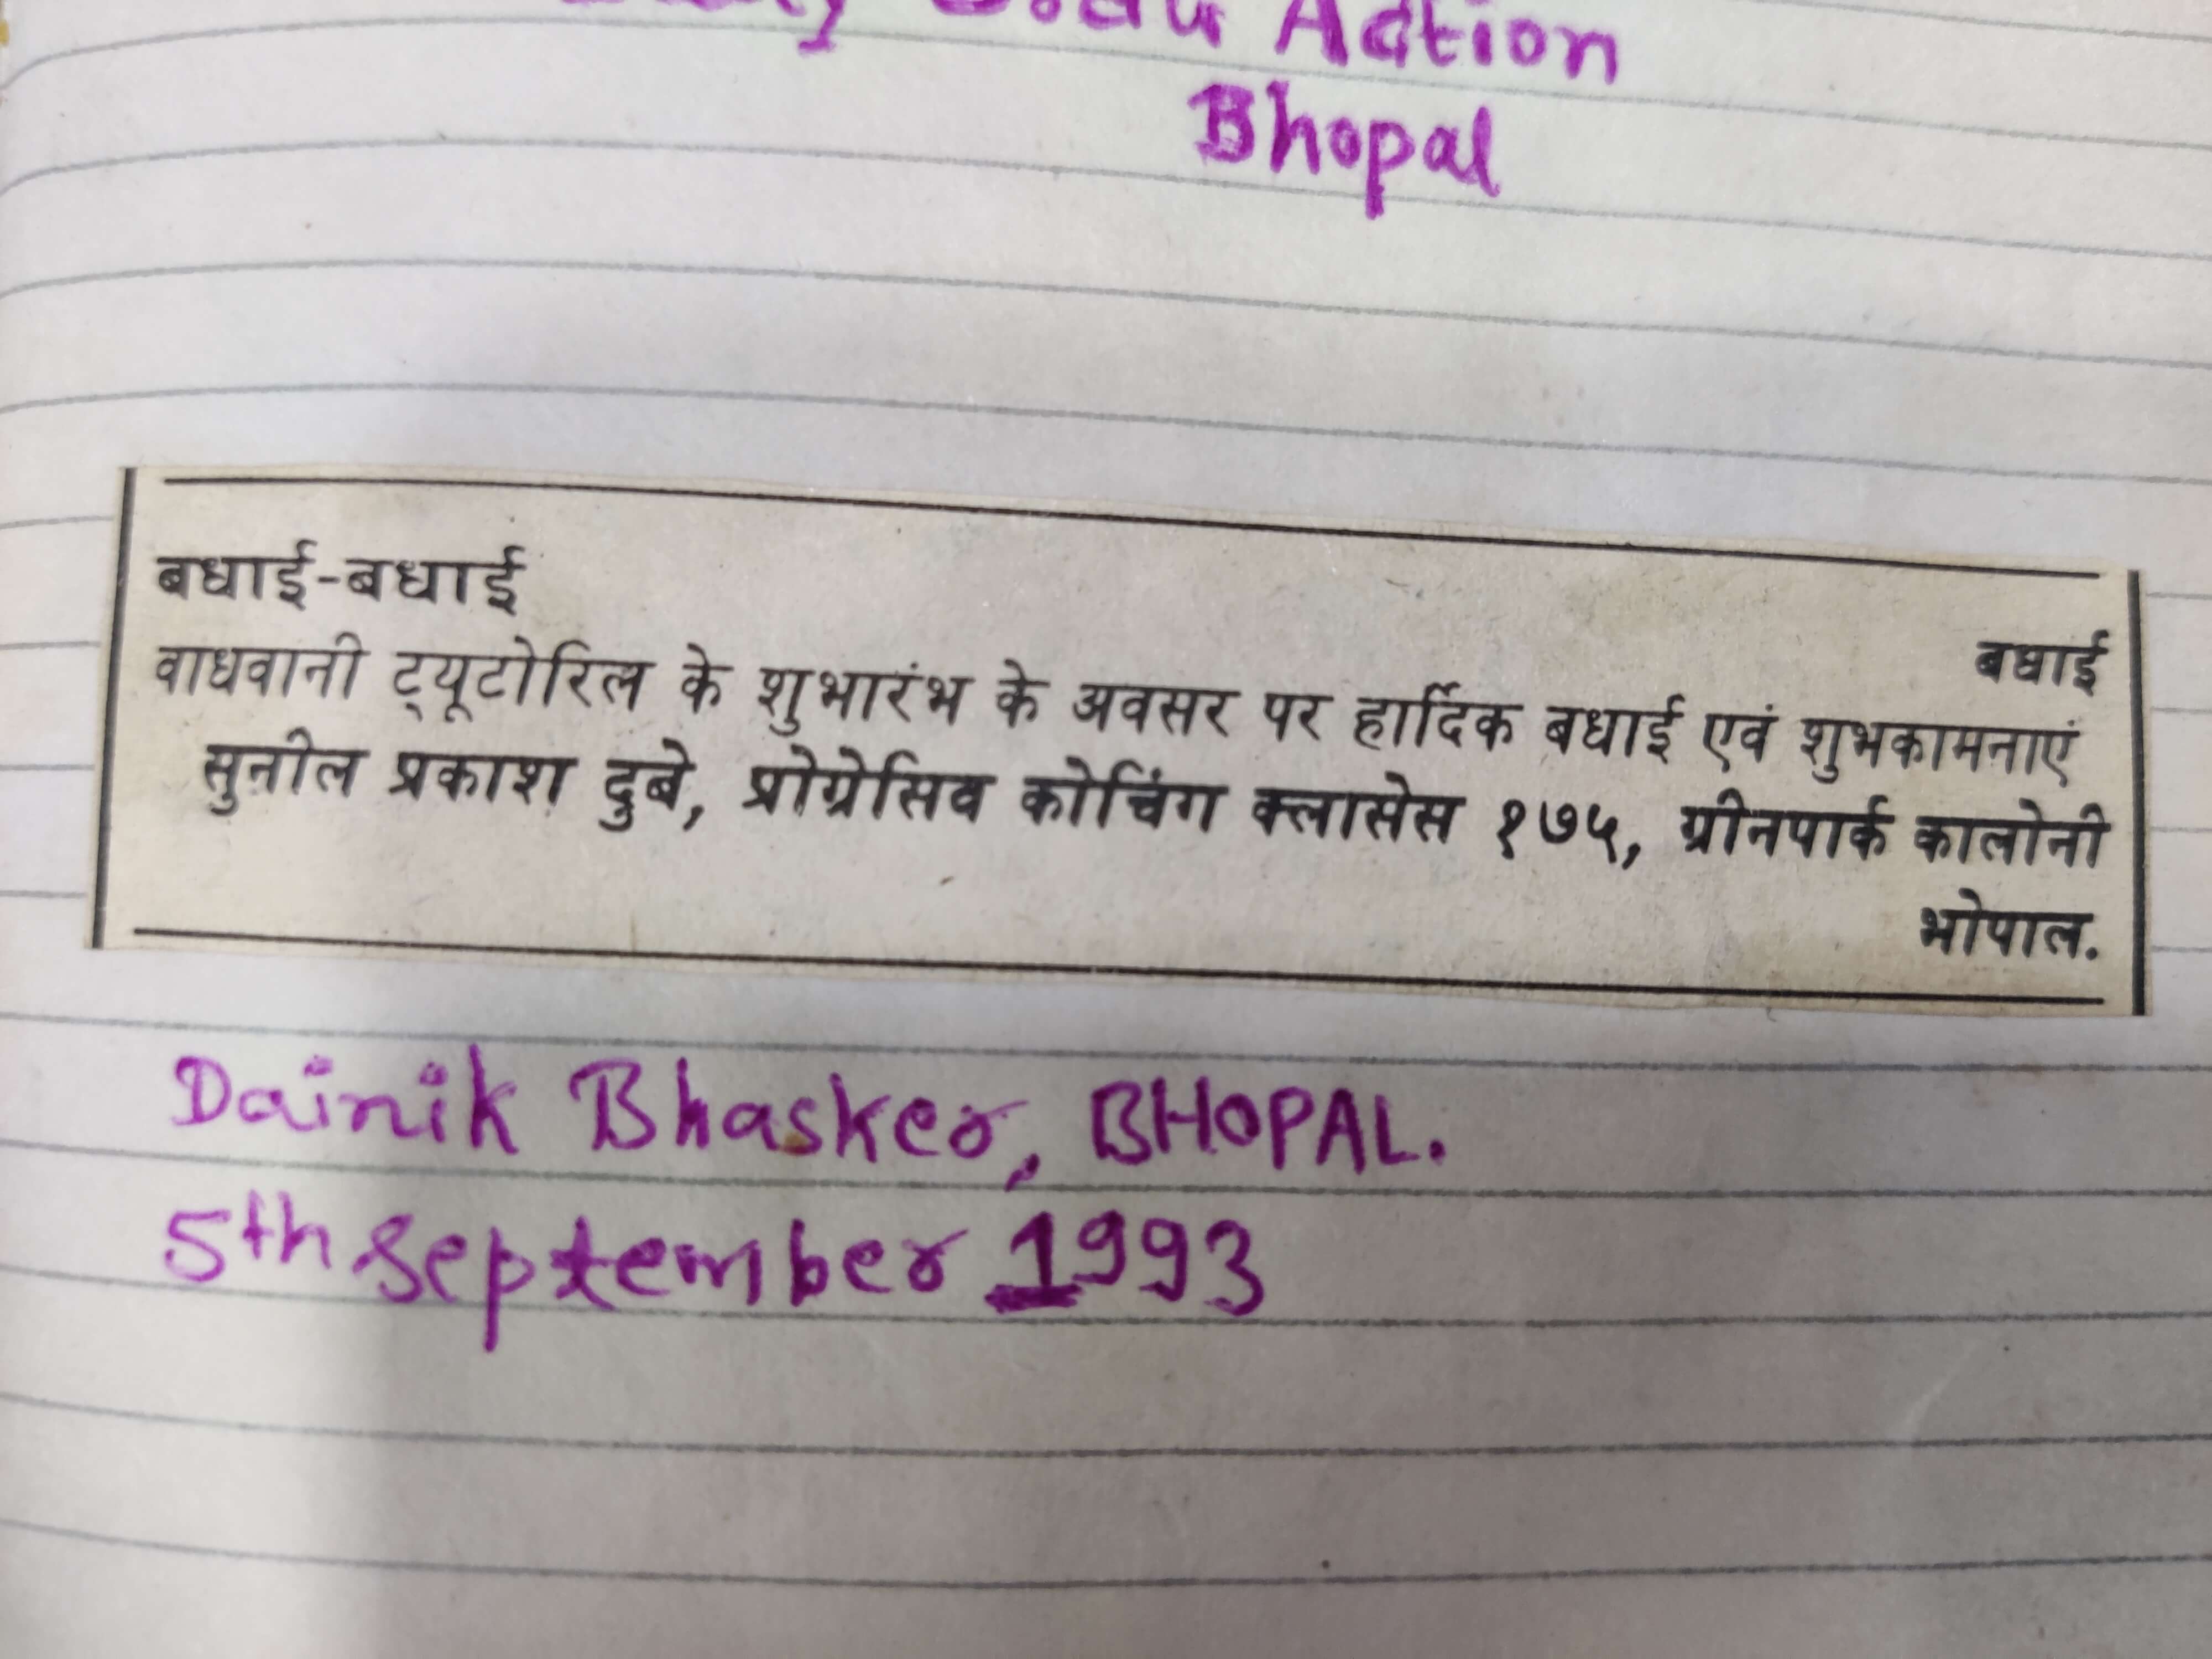 Action
Bhopal
बधाई-बधाई
बधाई
वाधवानी ट्यूटोरिल के शुभारंभ के अवसर पर हार्दिक बधाई एवं शुभकामनाएं
सुनील प्रकाश दुबे, प्रोग्रेसिव कोचिंग क्लासेस १७५, ग्रीनपार्क कालोनी
भोपाल.
Dainik Bhasker, BHOPAL.
5th September 1993